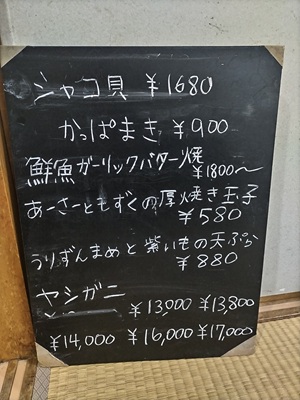 シャコ貝 ¥1680
かっぱまき ¥900
鮮魚ガーリックバター焼
¥1800〜
あーさーともずくの厚焼き玉子
¥580
うりずんまめと紫いもの天ぷら
¥880
ヤシガニ
¥13,000 ¥13,800
¥14,000 ¥16,000 ¥17,000